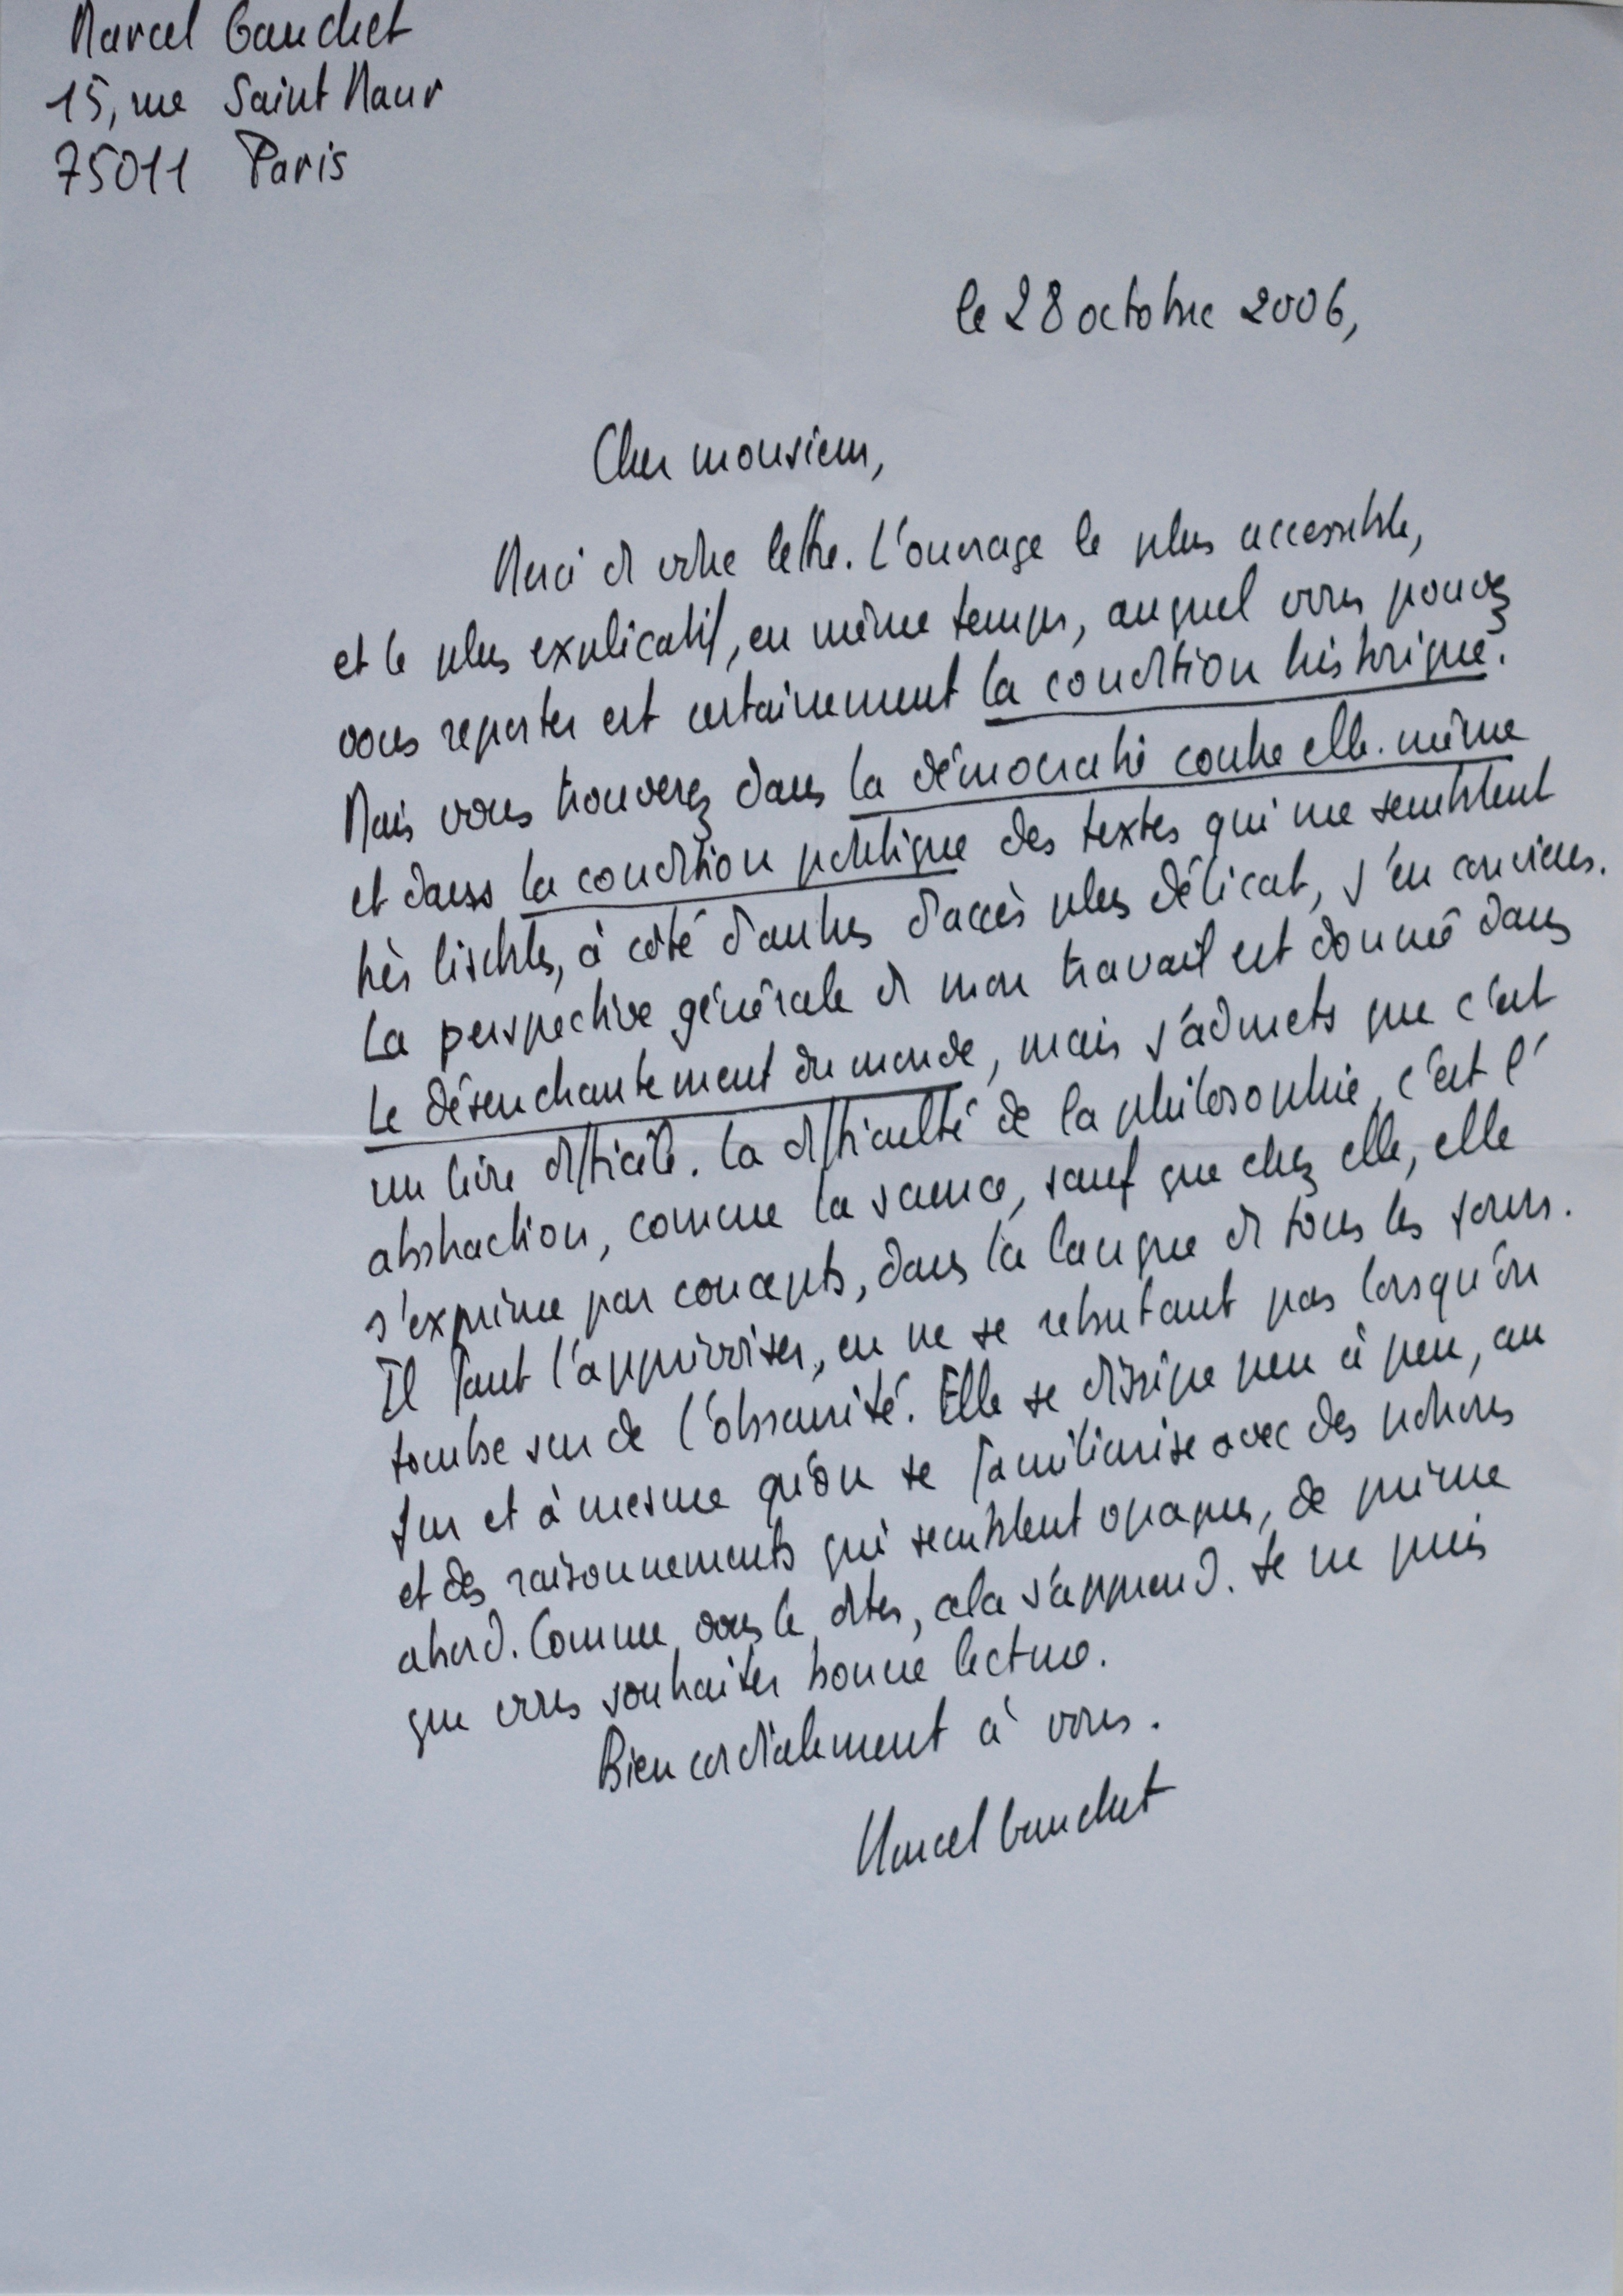 Marcel Gauchet
15, rue Saint Maur
75011 Paris
le 28 octobre 2006,
Cher monsieur,
Merci de votre lettre. L'ouvrage le plus accessible,
et le plus explicatif, en même temps, auquel vous pouvez
vous reporter est certainement la condition historique.
Mais vous trouverez dans la démocratie contre elle-même
et dans la condition politique des textes qui me semblent
très lisibles, à côté d'autres d'accès plus délicat, j'en conviens.
La perspective générale de mon travail est donnée dans
Le désenchantement du monde, mais j'admets que c'est
un livre difficile. La difficulté de la philosophie, c'est l'
abstraction, comme la science, sauf que chez elle, elle
s'exprime par concepts, dans la langue de tous les jours.
Il faut l'apprivoiser, en ne se rebutant pas lorsqu'on
tombe sur de l'obscurité. Elle se dissipe peu à peu, au
fur et à mesure qu'on se familiarise avec des notions
et des raisonnements qui semblent opaques, de prime
abord. Comme vous le dites, cela s'apprend. Je ne puis
que vous souhaiter bonne lecture.
Bien cordialement à vous.
Marcel Gauchet